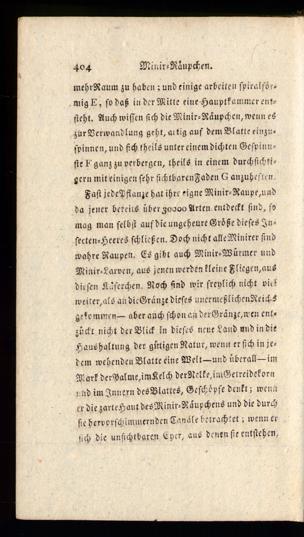 404 Minir-Räupchen.
mehr Raum zu haben; und einige arbeiten spiralför-
mig E, so daß in der Mitte eine Hauptkammer ent-
steht. Auch wissen sich die Minir-Räupchen, wenn es
zur Verwandlung geht, artig auf dem Blatte einzu-
spinnen, und sich theils unter einem dichten Gespinn-
ste F ganz zu verbergen, theils in einem durchsichti-
gern mit einigen sehr sichtbaren Faden G anzuheften.
Fast jede Pflanze hat ihre eigne Minir-Raupe, und
da jener bereits über 30000 Arten entdeckt sind, so
mag man selbst auf die ungeheure Größe dieses In-
secten-Heeres schließen. Doch nicht alle Minirer sind
wahre Raupen. Es gibt auch Minir-Würmer und
Minir-Larven, aus jenen werden kleine Fliegen, aus
diesen Käferchen. Noch sind wir freylich nicht viel
weiter, als an die Gränze dieses unermeßlichen Reichs
gekommen — aber auch schon an der Gränze, wen ent-
zückt nicht der Blick in dieses neue Land und in die
Haushaltung der gütigen Natur, wenn er sich in je-
dem wehenden Blatte eine Welt — und überall — im
Mark der Palme, im Kelch der Nelke, im Getreidekorn
und im Innern des Blattes, Geschöpfe denkt; wenn
er die zarte Haut des Minir-Räupchens und die durch
sie hervorschimmernden Canäle betrachtet; wenn er
sich die unsichtbaren Eyer, aus denen sie entstehen,